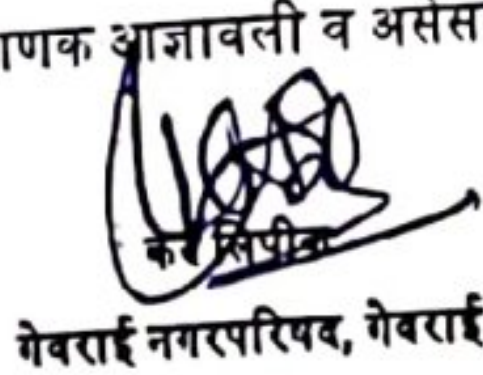 णक आज्ञावली व असेस
कर लिपीक
गेवराई नगरपरिषद, गेवराई